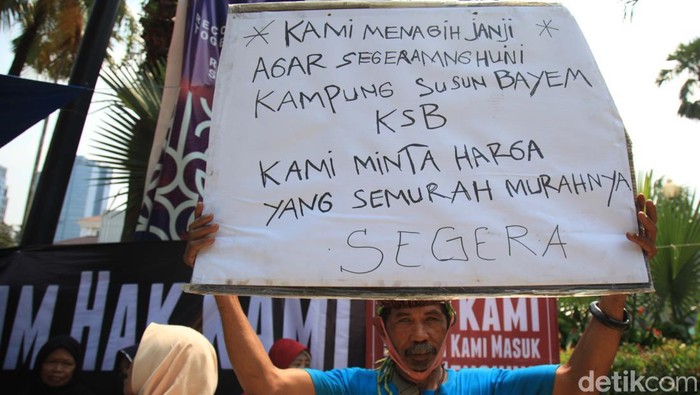 * KAMI MENAGIH JANJI *
AGAR SEGERAMNGHUNI
KAMPUNG SUSUN BAYEM
KSB
KAMI MINTA HARGA
YANG SEMURAH MURAHNYA
SEGERA
HAK KAMI
KAMI
KAMI MASUK
detikcom